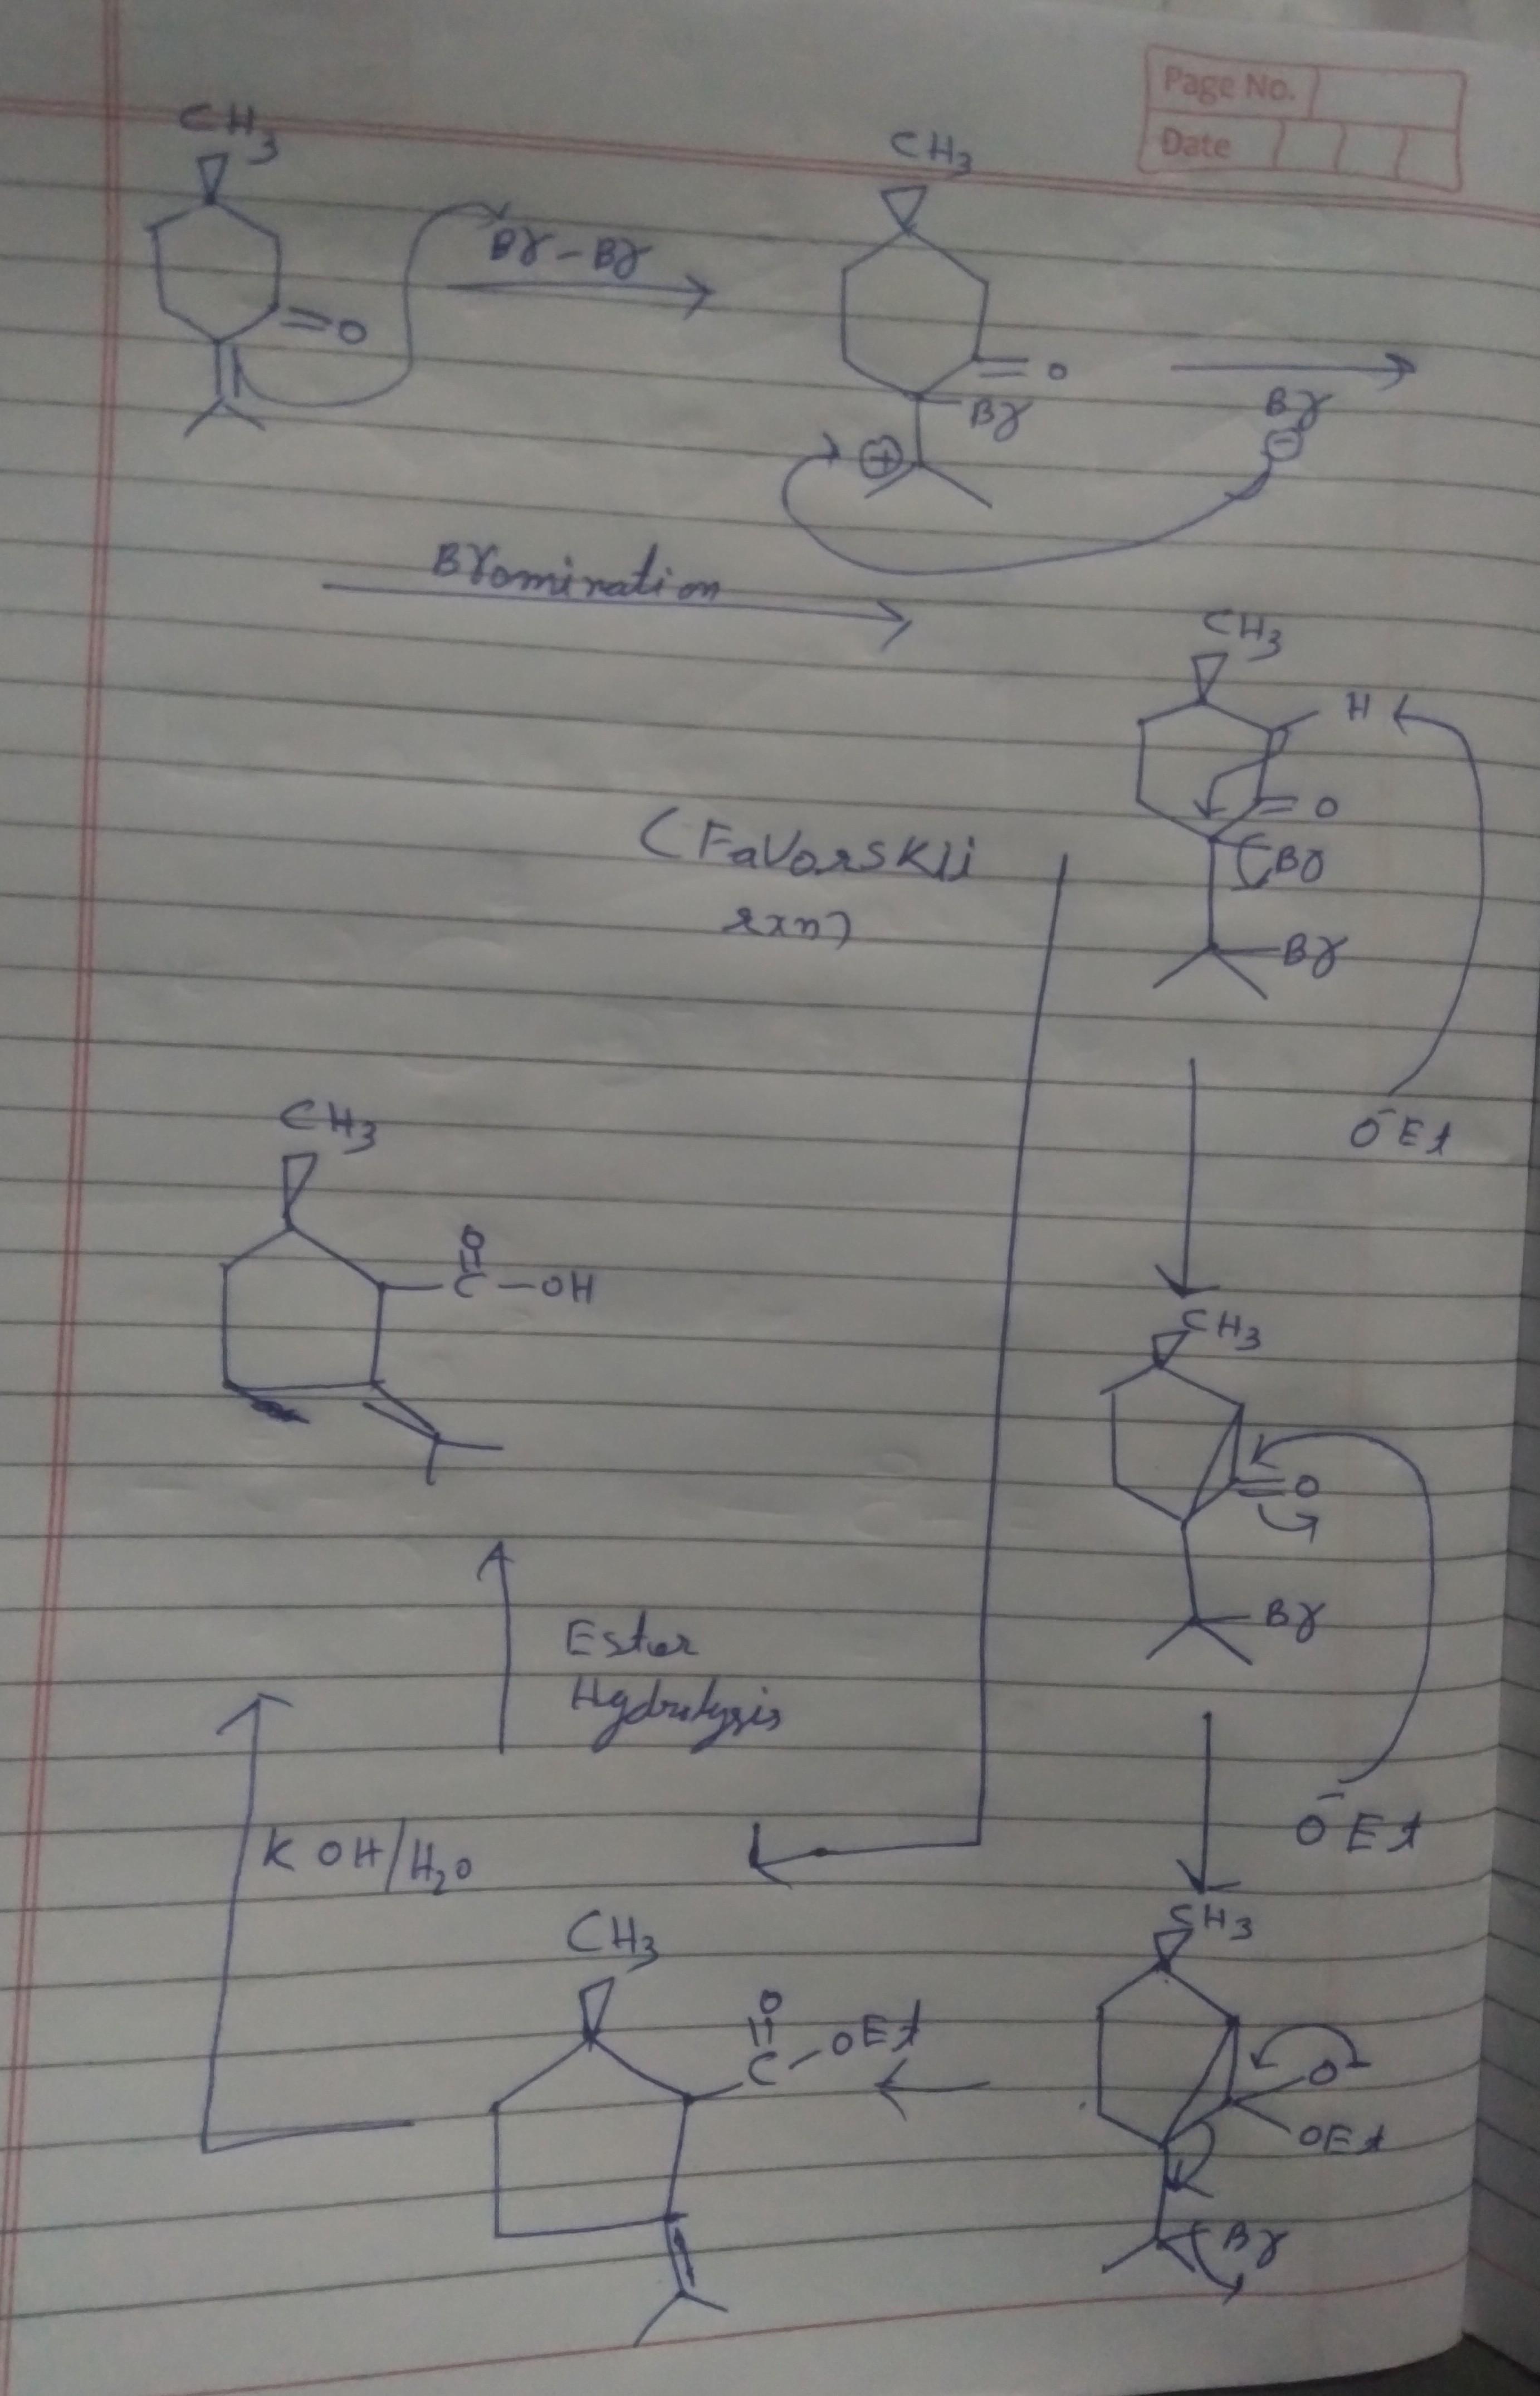 Page No.
Date
CH3
Br-Br
O
CH3
O
Br
⊕
Br
⊖
Bromination
CH3
H
O
Br
Br
(Favorskii
rxn)
O⁻Et
CH3
O
C-OH
CH3
O
Br
Ester
Hydrolysis
O⁻Et
KOH/H2O
CH3
O
C-OEt
CH3
O⁻
OEt
Br